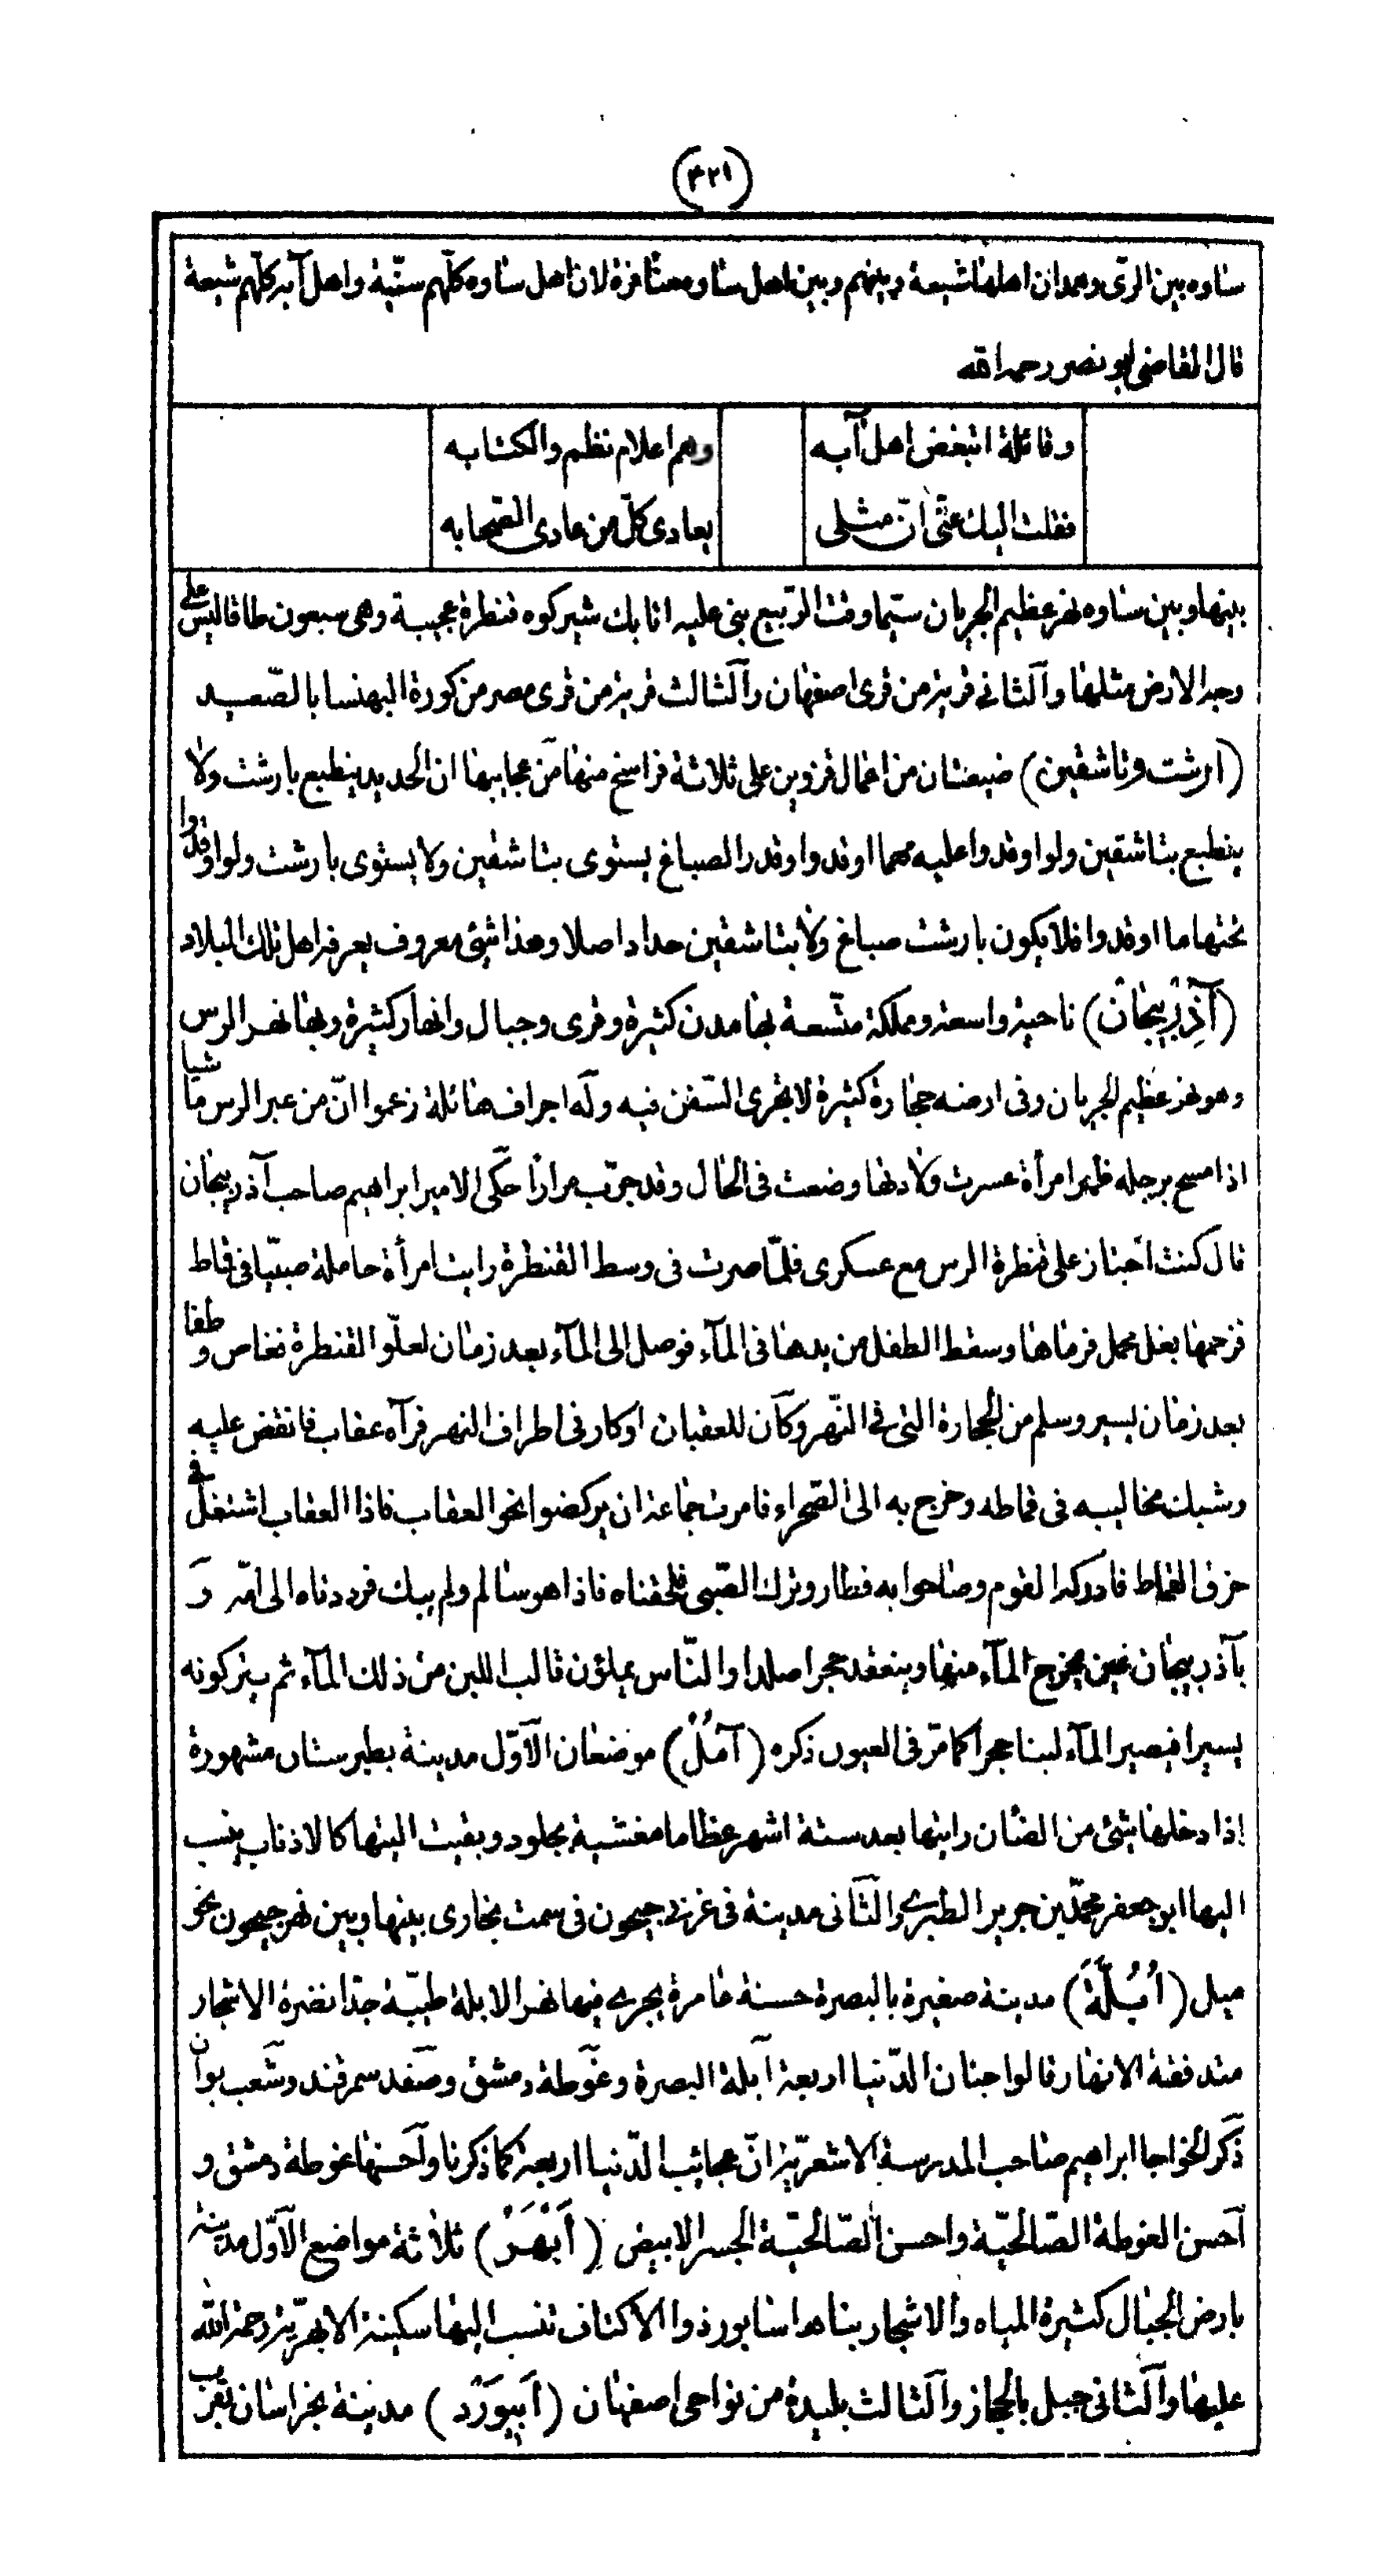 (۴۲۱)
ساوه بين الرّى وهمدان اهلها شيعة وبينهم وبين اهل ساوه منافرة لان اهل ساوه كلّهم سنّية واهل آبه كلّهم شيعة
قال القاضى ابو نصر رحمه الله
وقائلة اتبغض اهل آبه وهم اعلام نظم والكتابه
فقلت اليك عنّى انّ مثلى يعادى كلّ من عادى الصّحابه
بينها وبين ساوه نهر عظيم الجريان سيّما وقت الرّبيع بنى عليه اتابك شيركوه قنطرة عجيبة وهى سبعون طاقا ليس على
وجه الارض مثلها والثانى قرية من قرى اصفهان والثالث قرية من قرى مصر من كورة البهنسا بالصّعيد
(ارشت وناشقين) ضيعتان من اعمال قزوين على ثلاثة فراسخ منها من عجايبها ان الحديد ينطبع بارشت ولا
ينطبع بتاشقين ولو اوقدوا عليه مهما اوقدوا وقدر الصباغ يستوى بتاشقين ولا يستوى بارشت ولو اوقدوا
تحتها ما اوقدوا فلا يكون بارشت صباغ ولا بتاشقين حداد اصلا وهذا شئ معروف يعرفه اهل تلك البلاد
(آذِرْبِيجَانْ) ناحية واسعة ومملكة متّسعة بها مدن كثيرة وقرى وجبال وانهار كثيرة وبها نهر الرس
وهو نهر عظيم الجريان وفى ارضه حجارة كثيرة لا تجرى السّفن فيه وله اجراف هائلة زعموا انّ من عبر الرس ماشيا
اذا مسح برجله ظهر امرأة عسرت ولادتها وضعت فى الحال وقد جرّب مرارا حكى الامير ابراهيم صاحب آذربيجان
قال كنت اجتاز على قنطرة الرس مع عسكرى فلمّا صرت فى وسط القنطرة رايت امرأة حاملة صبيّا فى قماط
فزحمها بغل محمل فرماها وسقط الطفل من يدها فى المآء فوصل الى المآء بعد زمان لعلّو القنطرة فغاص وطفا
بعد زمان يسير وسلم من الحجارة التى فى النّهر وكان للعقبان اوكار فى اطراف النهر فرآه عقاب فانقض عليه
وشبك مخاليبه فى قماطه وخرج به الى الصّحراء فامرت جماعة ان يركضوا نحو العقاب فاذا العقاب اشتغل فى
خرق القماط فادركه القوم وصاحوا به فطار وترك الصّبى فلحقناه فاذا هو سالم ولم يبك فرددناه الى امّه و
بآذربيجان عين يخرج المآء منها وينعقد حجرا صلدا والنّاس يملؤن قالب اللبن من ذلك المآء ثم يتركونه
يسيرا فيصير المآء لبنا حجرا كما مرّ فى العيون ذكره (آمُلْ) موضعان الاوّل مدينة بطبرستان مشهورة
إذا دخلها شئ من الضأن رايتها بعد ستة اشهر عظاما مغشية بجلود وبقيت اليتها كالاذناب ينسب
اليها ابو جعفر محمّد بن جرير الطبرى والثانى مدينة فى غربى جيحون فى سمت بخارى بينها وبين نهر جيحون نحو
ميل (اُبُلَّةْ) مدينة صغيرة بالبصرة حسنة عامرة يجرى فيها نهر الابلة طيّبة جدّا نضرة الاشجار
متدفقة الانهار قالوا جنان الدّنيا اربعة ابلة البصرة وغوطة دمشق وصغد سمرقند وشعب بوان
ذكر الخواجا ابراهيم صاحب المدرسة الاشعريّة انّ عجائب الدّنيا اربعة كما ذكرنا واحسنها غوطة دمشق و
احسن الغوطة الصّالحيّة واحسن الصّالحيّة الجسر الابيض (أَبْهَرْ) ثلاثة مواضع الاوّل مدينة
بارض الجبال كثيرة المياه والاشجار بناها سابور ذو الاكتاف تنسب اليها سكينة الابهريّة رحمة الله
عليها والثانى جبل بالحجاز والثالث بليدة من نواحى اصفهان (اَبِيوَرْد) مدينة بخراسان بقرب